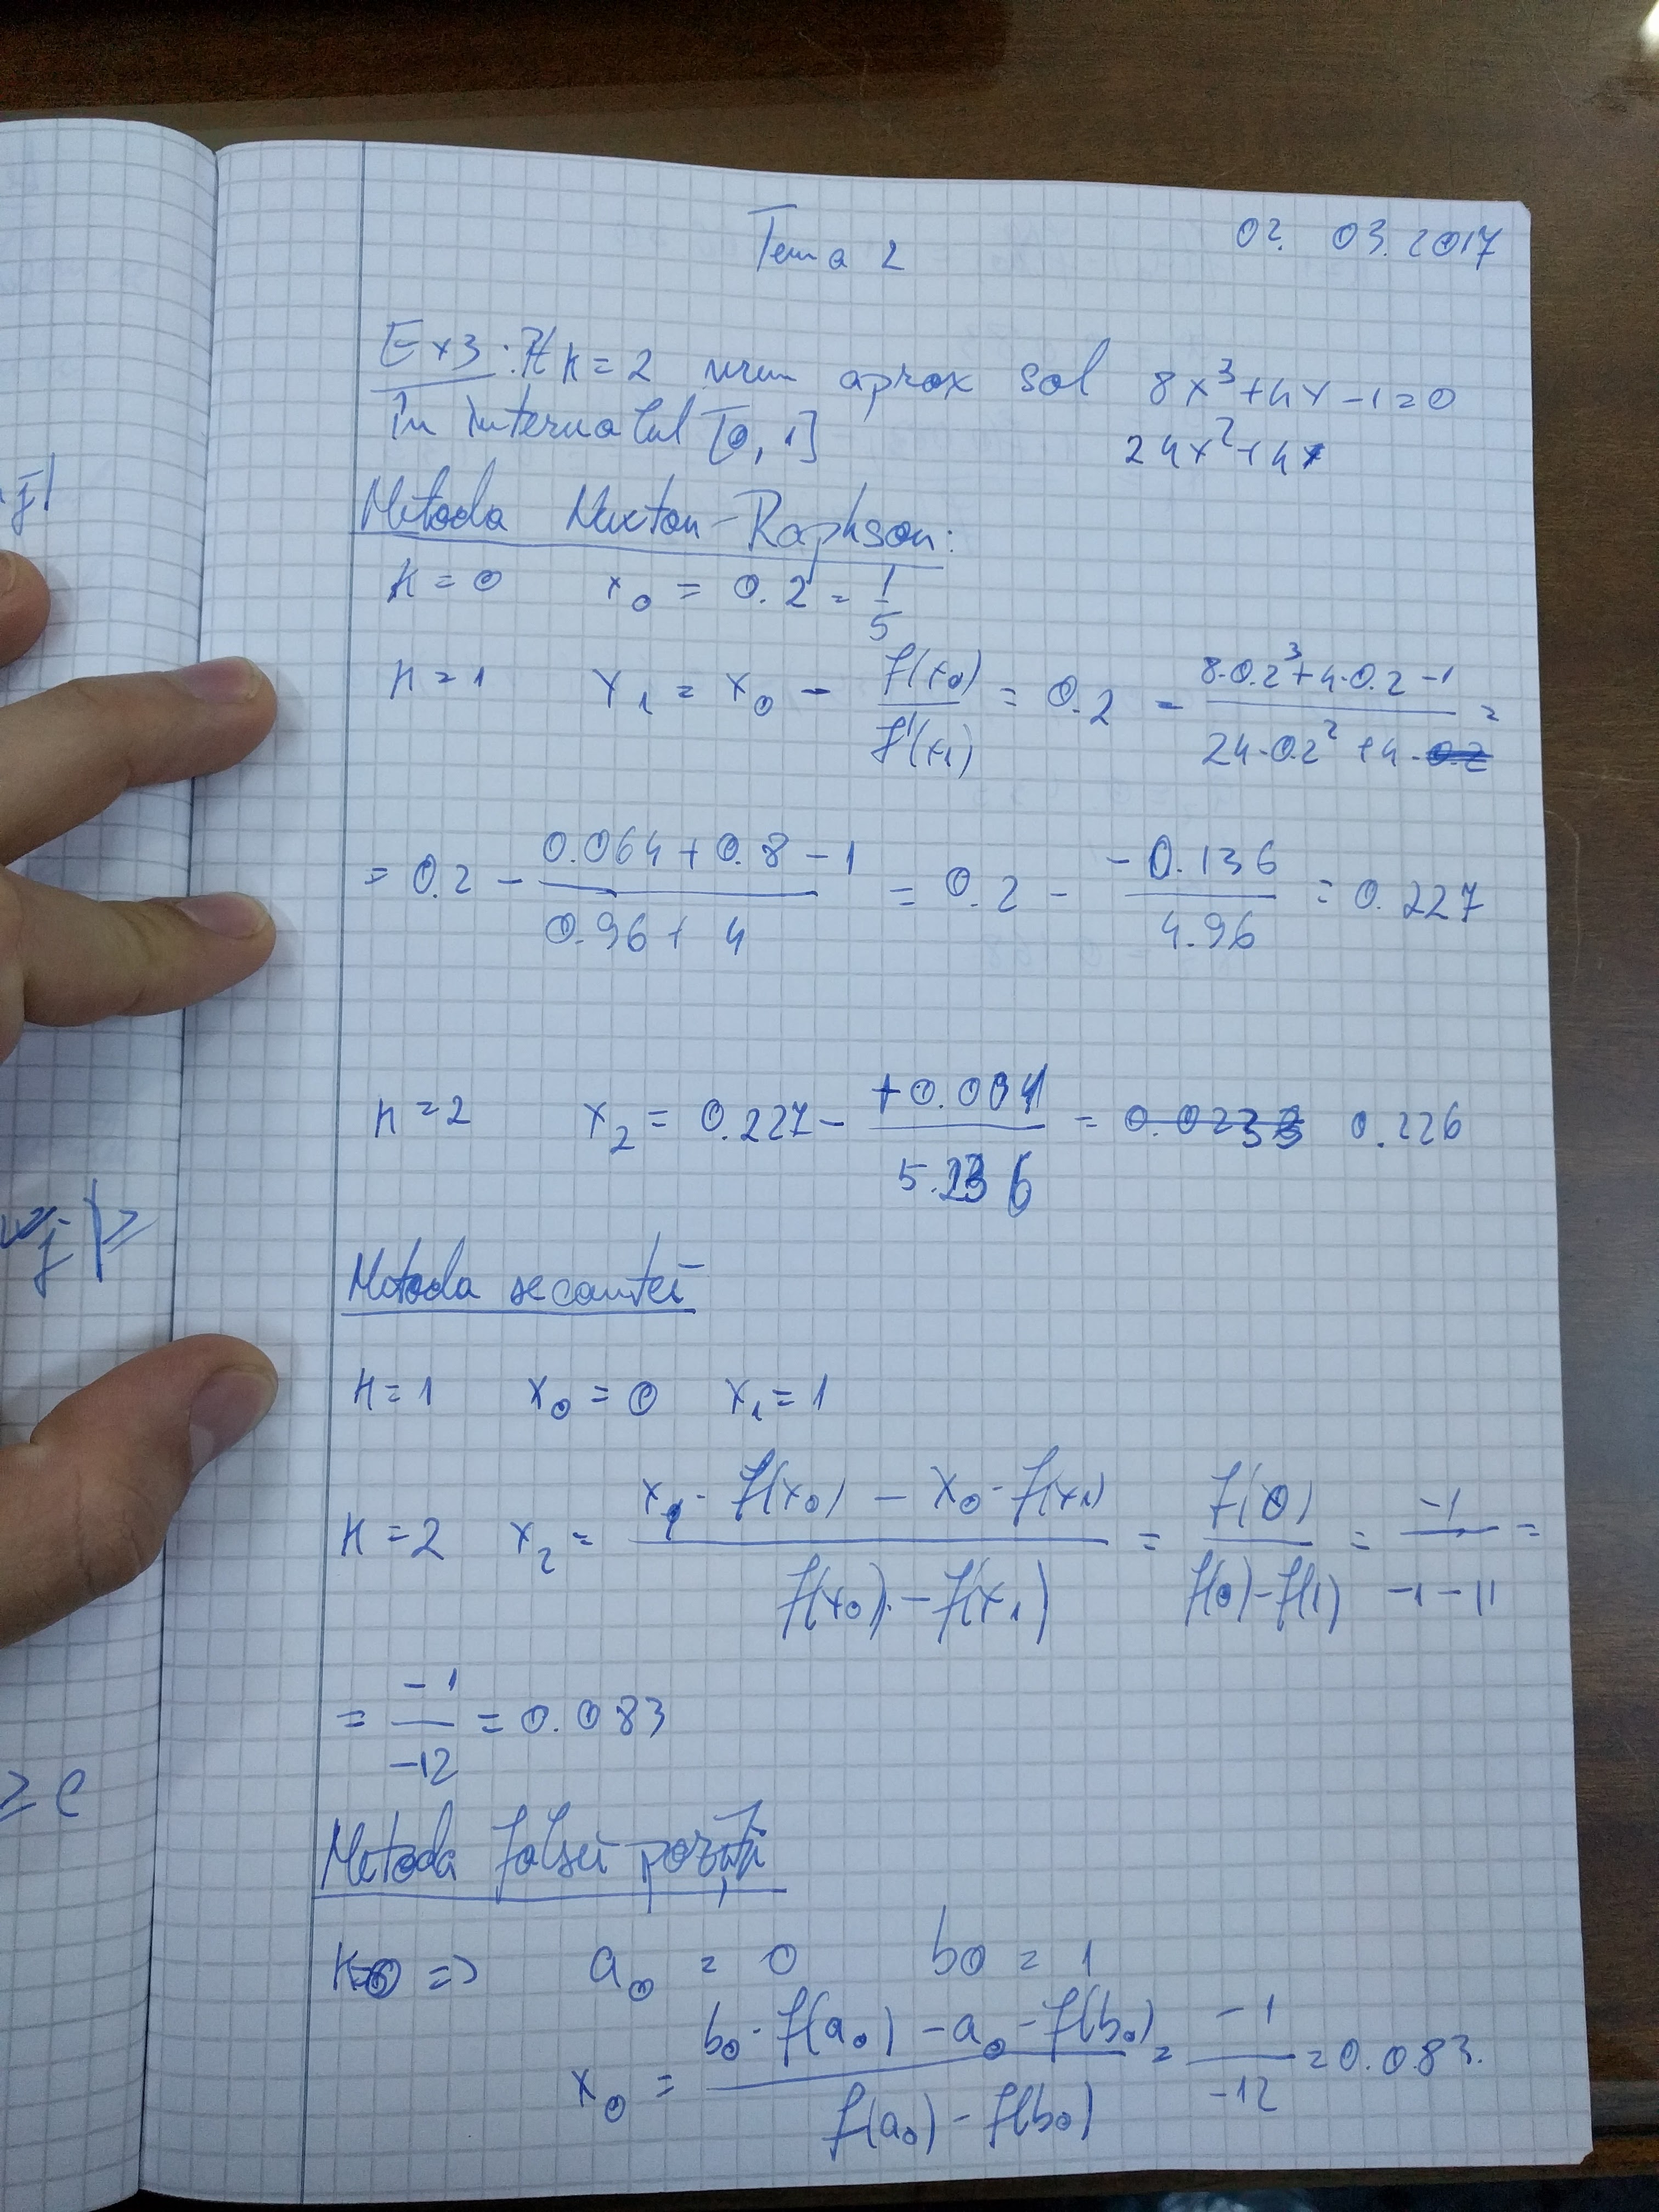 Tema 2
02. 03. 2017
Ex3: Pt k=2 vrem aprox sol 8x³+4x-1=0
în intervalul [0,1] 24x²+4
Metoda Newton-Raphson:
k=0 x₀ = 0.2 = 1/5
k=1 x₁ = x₀ - f(x₀)/f'(x₁) = 0.2 - (8·0.2³+4·0.2-1)/(24·0.2²+4·0.2) =
= 0.2 - (0.064+0.8-1)/(0.96+4) = 0.2 - (-0.136)/4.96 = 0.227
k=2 x₂ = 0.227 - (+0.001)/5.236 = 0.0233 0.226
Metoda secantei
k=1 x₀=0 x₁=1
k=2 x₂ = (x₁·f(x₀) - x₀·f(x₁))/(f(x₀)-f(x₁)) = f(0)/(f(0)-f(1)) = -1/(-1-11) =
= -1/-12 = 0.083
Metoda falsei poziții
k=0 => a₀ = 0 b₀ = 1
x₀ = (b₀·f(a₀) - a₀·f(b₀))/(f(a₀)-f(b₀)) = -1/-12 = 0.083.
wj|≥
≥ e